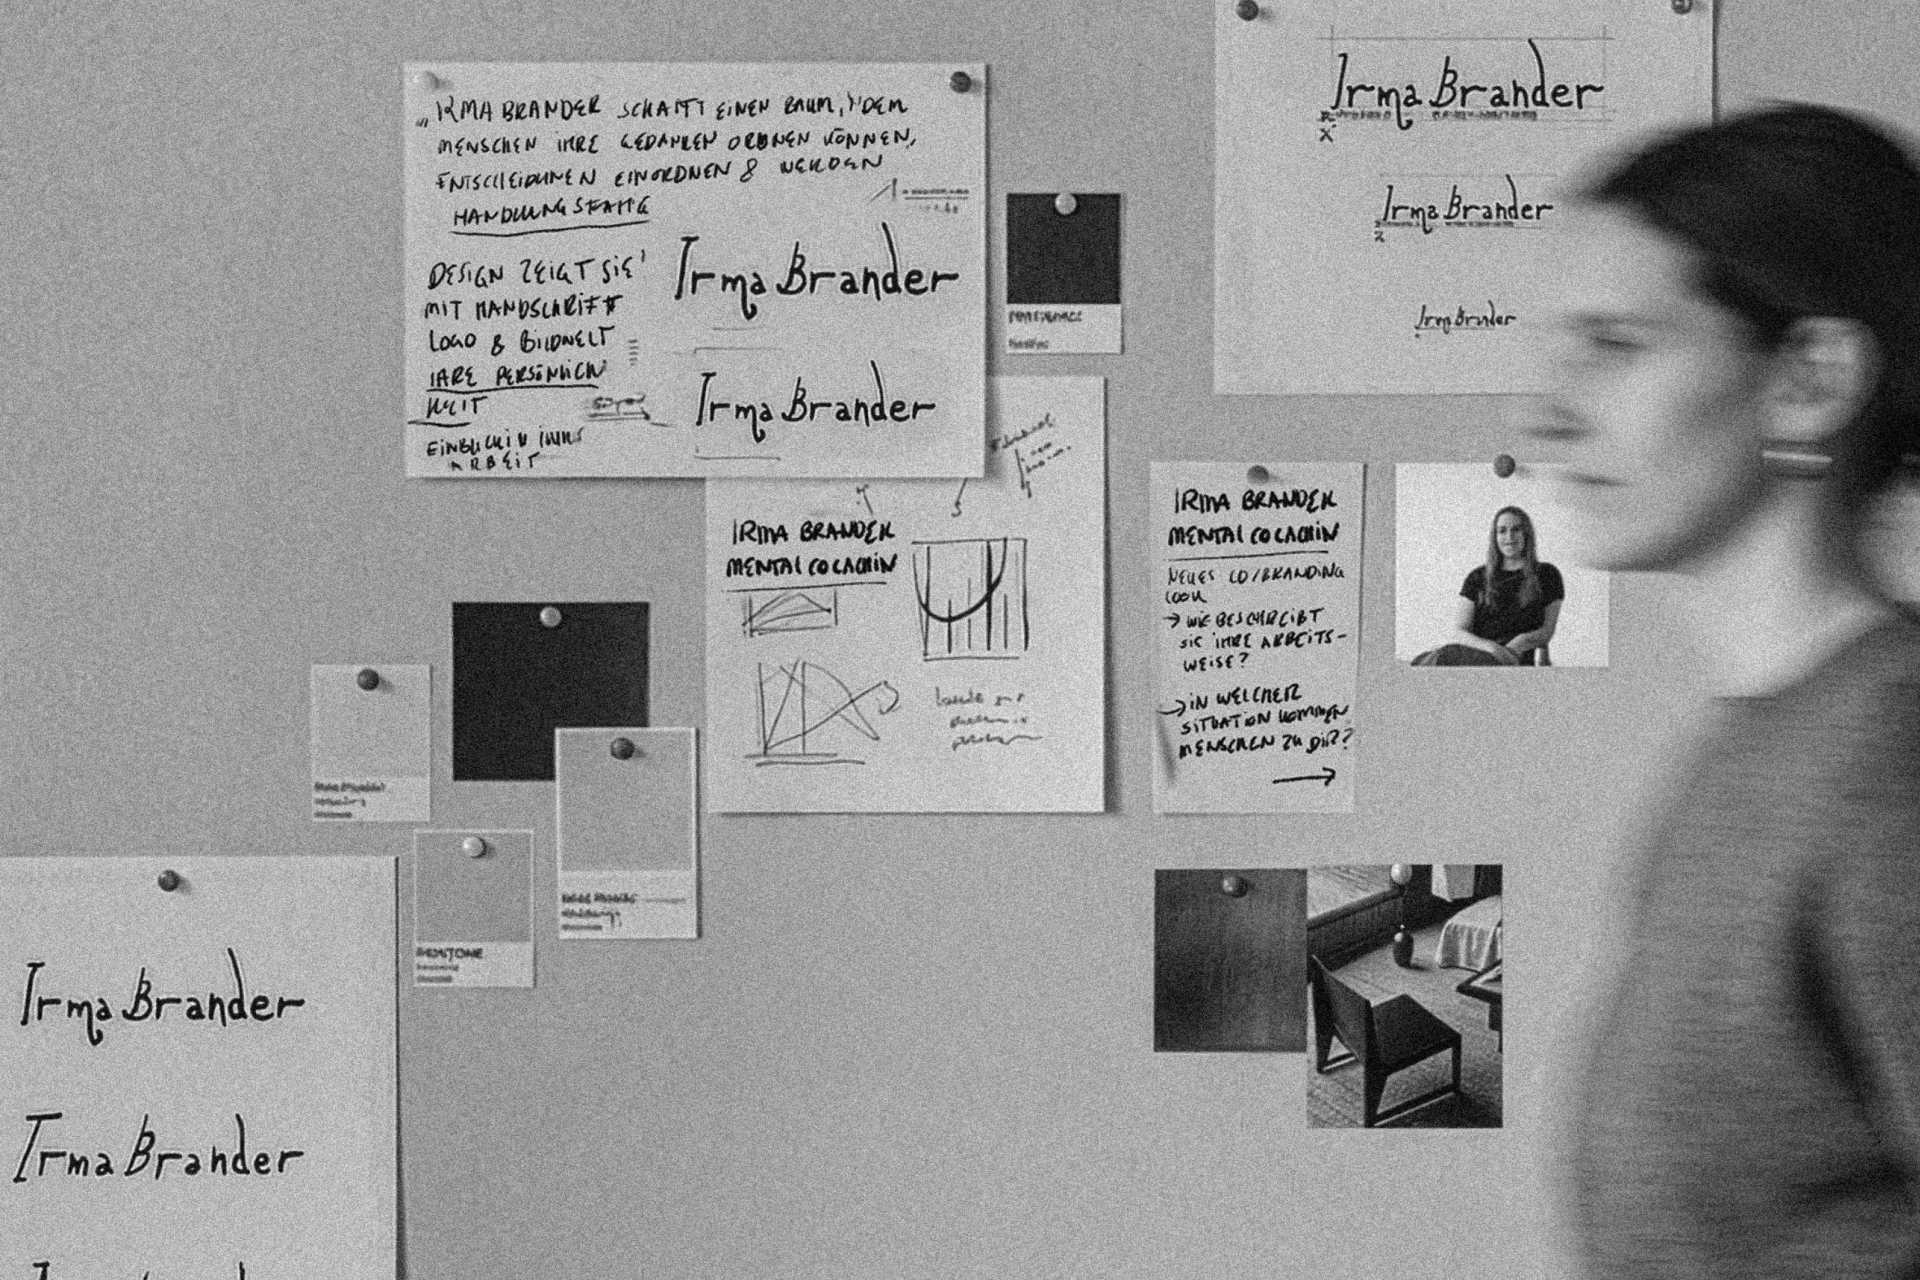 „IRMA BRANDER SCHAFFT EINEN RAUM, IN DEM
MENSCHEN IHRE GEDANKEN ORDNEN KÖNNEN,
ENTSCHEIDUNEN EINORDNEN & WERDEN
HANDLUNGSFÄHIG
DESIGN ZEIGT SIE
MIT HANDSCHRIFT
LOGO & BILDWELT
IHRE PERSÖNLICH
KEIT
EINBLICK IN IHRE
ARBEIT
Irma Brander
Irma Brander
Irma Brander
Irma Brander
Irma Brander
IRMA BRANDER
MENTAL COCACHIN
IRMA BRANDER
MENTAL COCACHIN
NEUES CD/BRANDING
LOOK
→ WIE BESCHREIBT
SIE IHRE ARBEITS-
WEISE?
→ IN WELCHER
SITUATION KOMMEN
MENSCHEN ZU DIR?
Irma Brander
Irma Brander